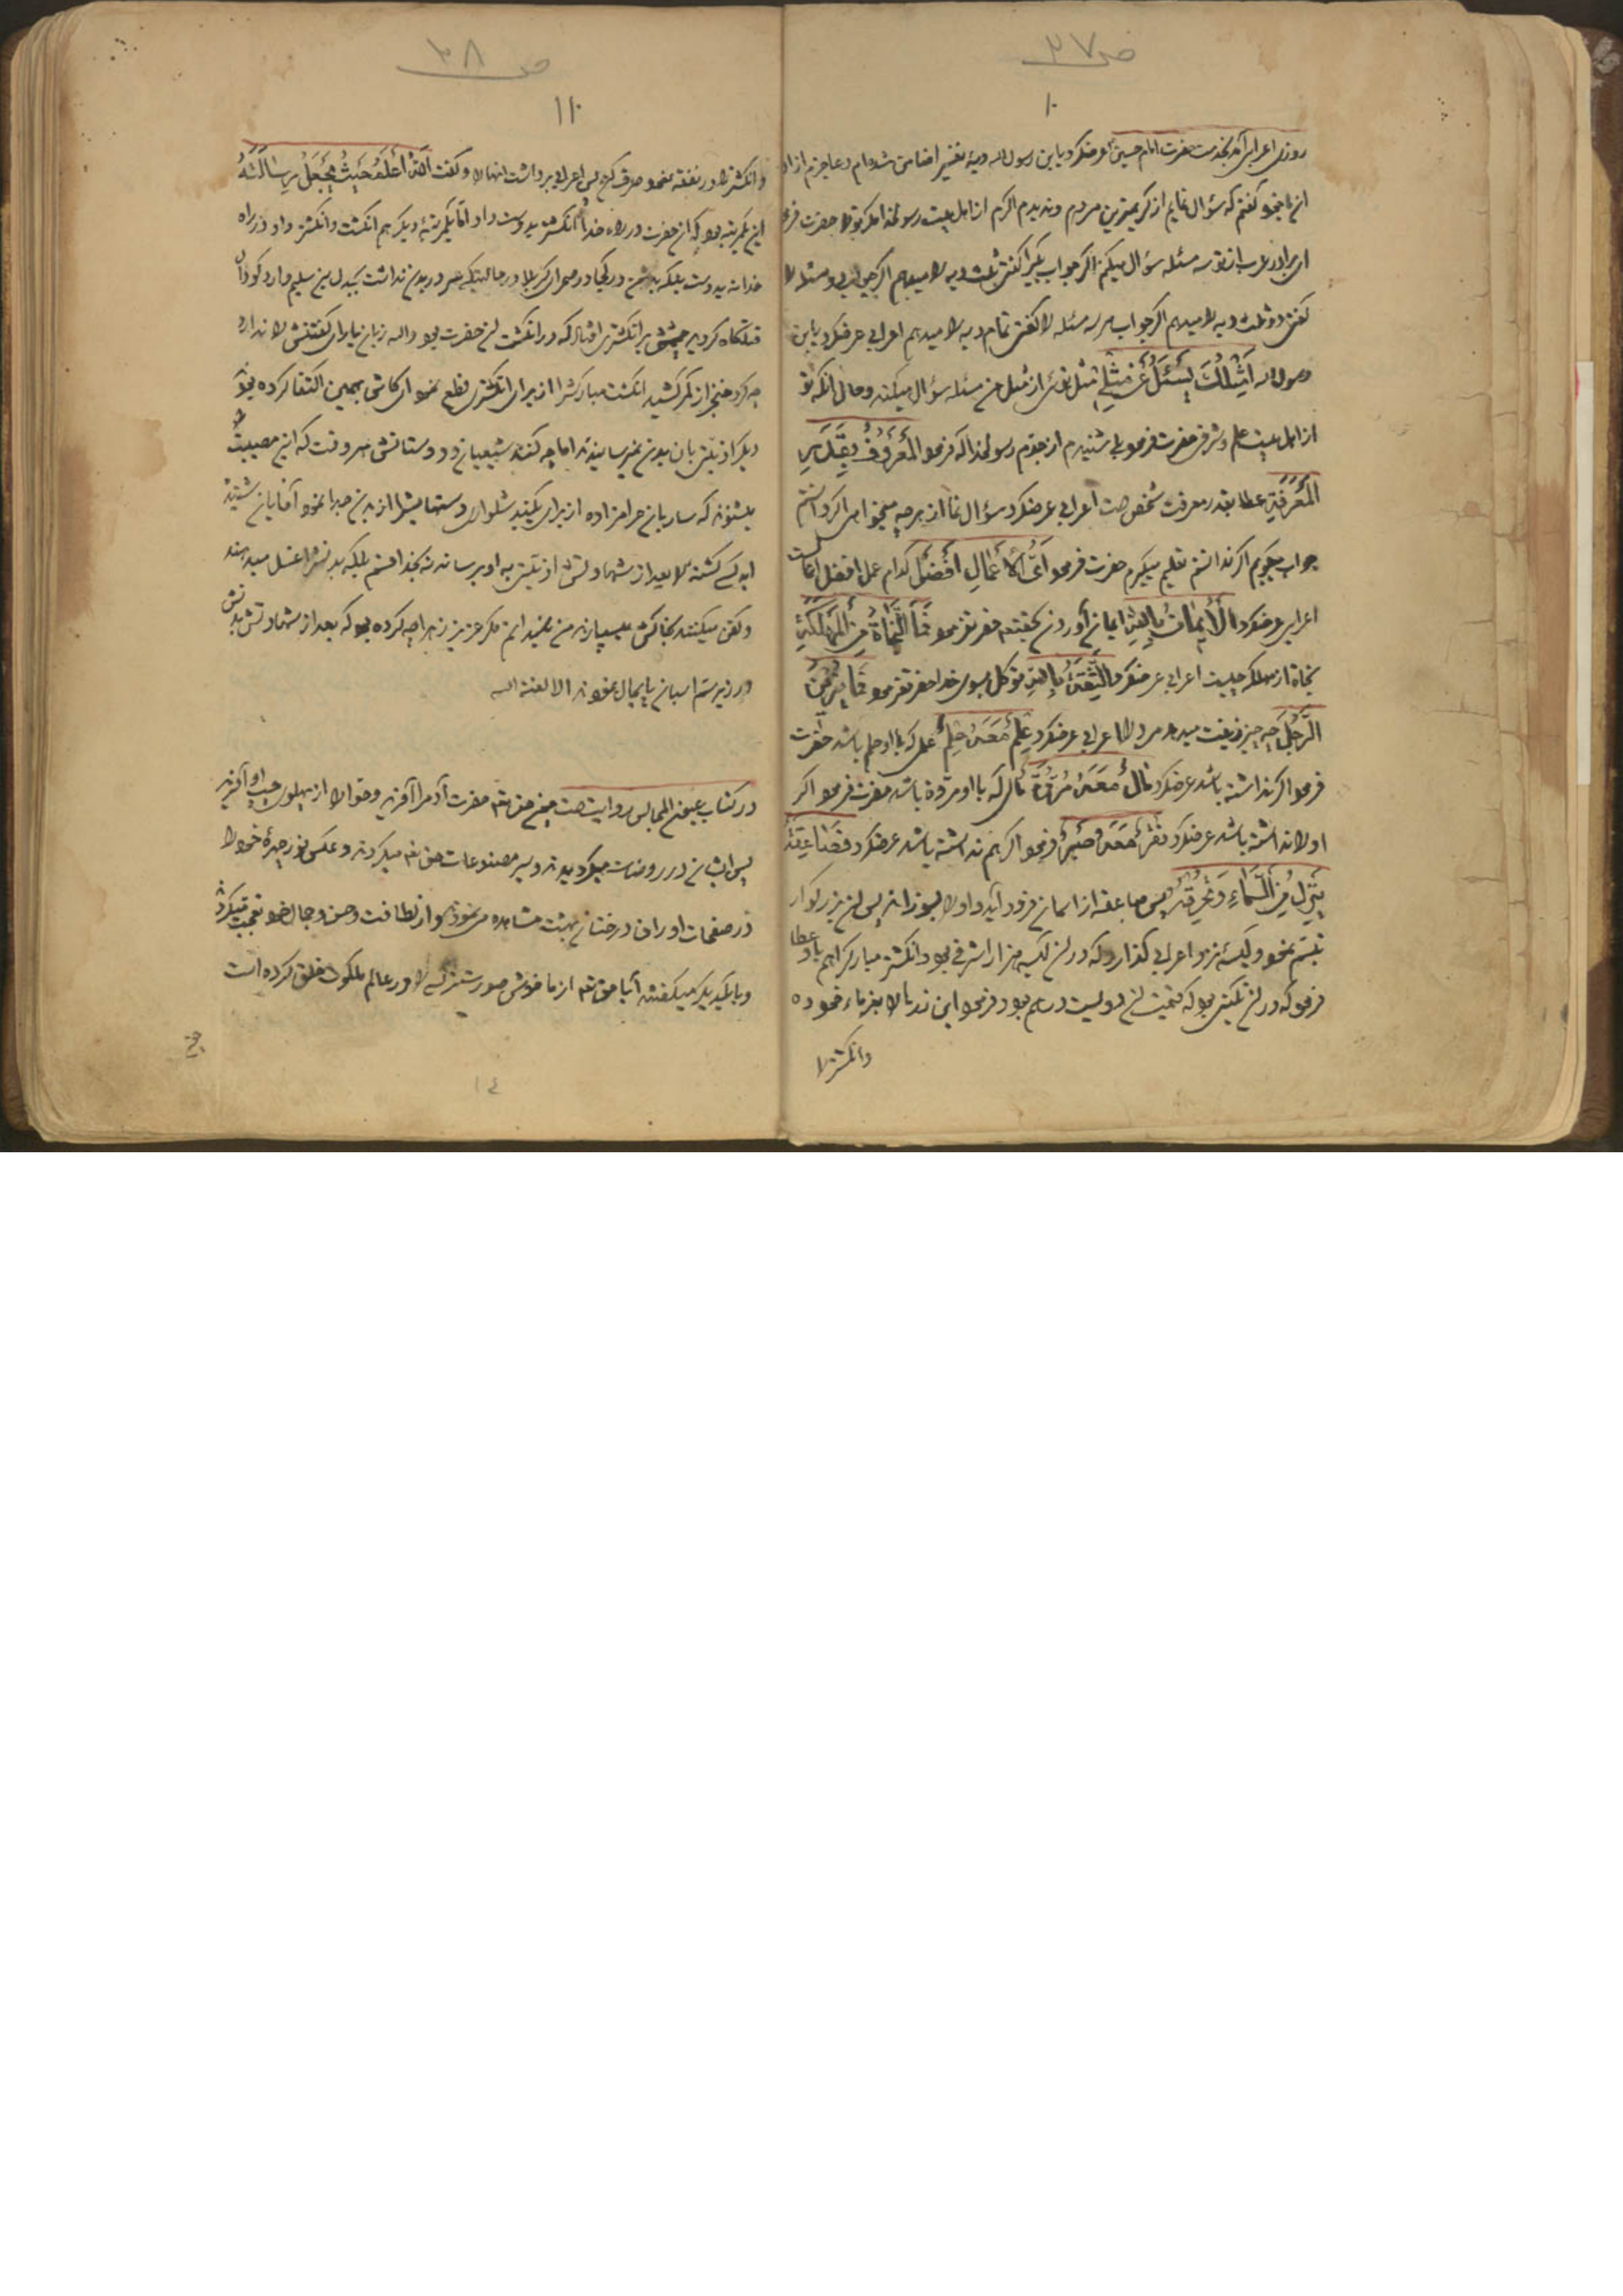 ص ۳۷
۱۰
روزی اعرابی آمد بخدمت حضرت امام حسین عرضکرد یابن رسول الله دیهٔ نفسیرا ضامن شده‌ام و عاجزم از ادا
آن با خود گفتم که سؤال نمایم از کریمترین مردم و ندیدم اکرم از اهل بیت رسولخدا مگر تو را حضرت فرمود
ای برادر عرب از تو سه مسئله سؤال میکنم اگر جواب یکیرا گفتی ثلث دیه را میدهم اگر جواب دو مسئله را
گفتی دو ثلث دیه را میدهم اگر جواب هر سه مسئله را گفتی تمام دیه را میدهم اعرابی عرضکرد یابن
رسول الله اَمِثْلُكَ یَسْئَلُ عَنْ مِثْلِي مثل توئی از مثل من مسئله سؤال میکند و حال آنکه تو
از اهل بیت علم و شرفی حضرت فرمود بلی شنیدم از جدم رسولخدا که فرمود اَلْمَعْرُوفُ بِقَدْرِ
الْمَعْرِفَةِ عطا بقدر معرفت شخص است اعرابی عرضکرد سؤال نما از هر چه میخواهی اگر دانستم
جواب میگویم اگر ندانستم تعلیم میگیرم حضرت فرمود اَيُّ الْأَعْمَالِ اَفْضَلُ کدام عمل افضل اعمالست
اعرابی عرضکرد اَلْاِیمَانُ بِاللّٰهِ ایمان آوردن بخدا حضرت فرمود فَمَا النَّجَاةُ مِنَ الْمَهْلَکَةِ
نجاة از مهلکه چیست اعرابی عرضکرد اَلثِّقَةُ بِاللّٰهِ توکل بسوی خدا حضرت فرمود فَمَا یُزَیِّنُ
الرَّجُلَ چه چیز زینت میدهد مرد را اعرابی عرضکرد عِلْمٌ مَعَهُ حِلْمٌ علمی که با او حلم باشد حضرت
فرمود اگر نداشته باشد عرضکرد مَالٌ مَعَهُ مُرُوَّةٌ مالی که با او مروة باشد حضرت فرمود اگر
او را نداشته باشد عرضکرد فَقْرٌ مَعَهُ صَبْرٌ فرمود اگر هم نداشته باشد عرضکرد فَصَاعِقَةٌ
یَنْزِلُ مِنَ السَّمَاءِ وَ تُحْرِقُهُ پس صاعقه از آسمان فرود آید و او را بسوزاند پس آن بزرگوار
تبسم نمود و کیسهٔ نزد اعرابی گذارد که در آن کیسه هزار اشرفی بود و انگشتر مبارکرا هم باو عطا
فرمود که در آن نگینی بود که قیمت آن دویست درهم بود فرمود این زر را بغرماء خود ده
وانگشتر را
ص ۳۸
۱۱
وانگشتر را در نفقه خود صرف کن پس اعرابی برداشت آنها را و گفت اَللّٰهُ اَعْلَمُ حَیْثُ یَجْعَلُ رِسَالَتَهُ
این یکمرتبه بود که آن حضرت در راه خدا انگشتر بدوست داد اما یکمرتبهٔ دیگر هم انگشت وانگشتر داد در راه
خدا نه بدوست بلکه بدشمن در کجا در صحرای کربلا در حالتیکه سر در بدن نداشت بجدل بن سلیم وارد گودال
قتلگاه گردید چشمش برانگشتری افتاد که در انگشت آن حضرت بود والله زبان یارای گفتنش را ندارد
چه کرد خنجر از کمر کشید انگشت مبارکشرا از برای انگشتری قطع نمود ای کاش بهمین اکتفا کرده بود
دیگر اذیتی بان بدن نمیرسانیدند اما چه کنند شیعیان و دوستانش هر وقت که این مصیبت را
بشنوند که ساربان حرامزاده از برای یکبند شلوار دستهایشرا از بدن جدا نمود آقایان شنیدید
ابد کسی کشته را بعد از شهادتش اذیتی به او برساند نه بخدا قسم بلکه بدنشرا غسل میدهند
و کفن میکنند بخاکش میسپارند من نمیدانم مگر عزیز زهرا چه کرده بود که بعد از شهادتش بدنش
در زیر سم اسبان پایمال نمودند الا لعنة الله
در کتاب عیون المجالس روایتست چون حق تع حضرت آدم را آفرید و حوا را از پهلوی چپ او آفرید
پس ایشان در روضات میگردیدند و سیر مصنوعات حق تع میکردند و عکس نور چهرهٔ خود را
در صفحات اوراق درختان بهشت مشاهده مینمودند و از لطافت و حسن و جمال خود تعجب میکردند
و با یکدیگر میگفتند آیا حق تع از ما خوش صورت‌تر کسی را در عالم ملکوت خلق کرده است
۱٤